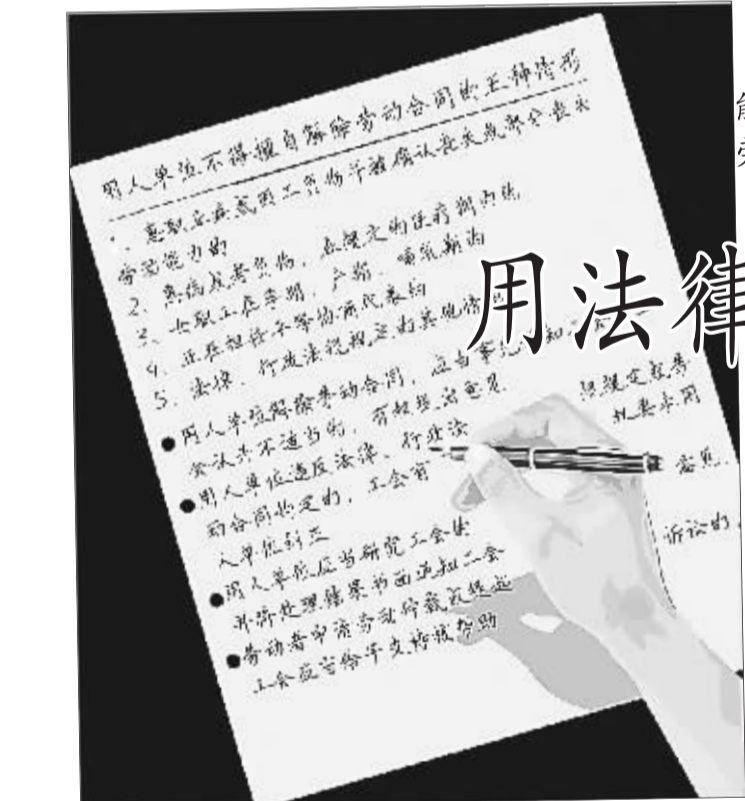 用人单位不得擅自解除劳动合同的五种情形
1、患职业病或因工负伤并被确认丧失或部分丧失
劳动能力的
2、患病或者负伤，在规定的医疗期内的
3、女职工在孕期、产期、哺乳期的
4、正在担任平等协商代表的
5、法律、行政法规规定的其他情
用法律
●用人单位解除劳动合同，应当事先通知
会认为不适当的，有权提出意见
●用人单位违反法律、行政法 规规定或劳
动合同约定的，工会有 权要求用
人单位纠正
●用人单位应当研究工会的 意见，
并将处理结果书面通知工会
●劳动者申请劳动仲裁或提起 诉讼的，
工会应当给予支持或帮助